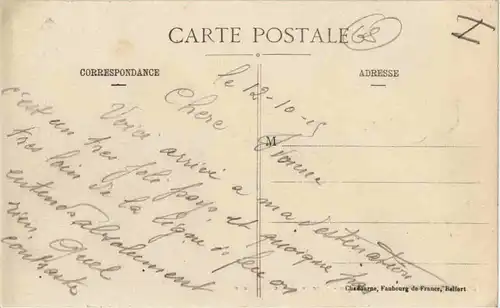 CARTE POSTALE
68
CORRESPONDANCE
ADRESSE
M
le 12-10-15
Chère Yvonne
Voici arrivé a ma destination
c'est un très joli pays et quoique pas
très loin de la ligne de feu on
entend absolument
rien Quel
contraste
Chadourne, Faubourg de France, Belfort